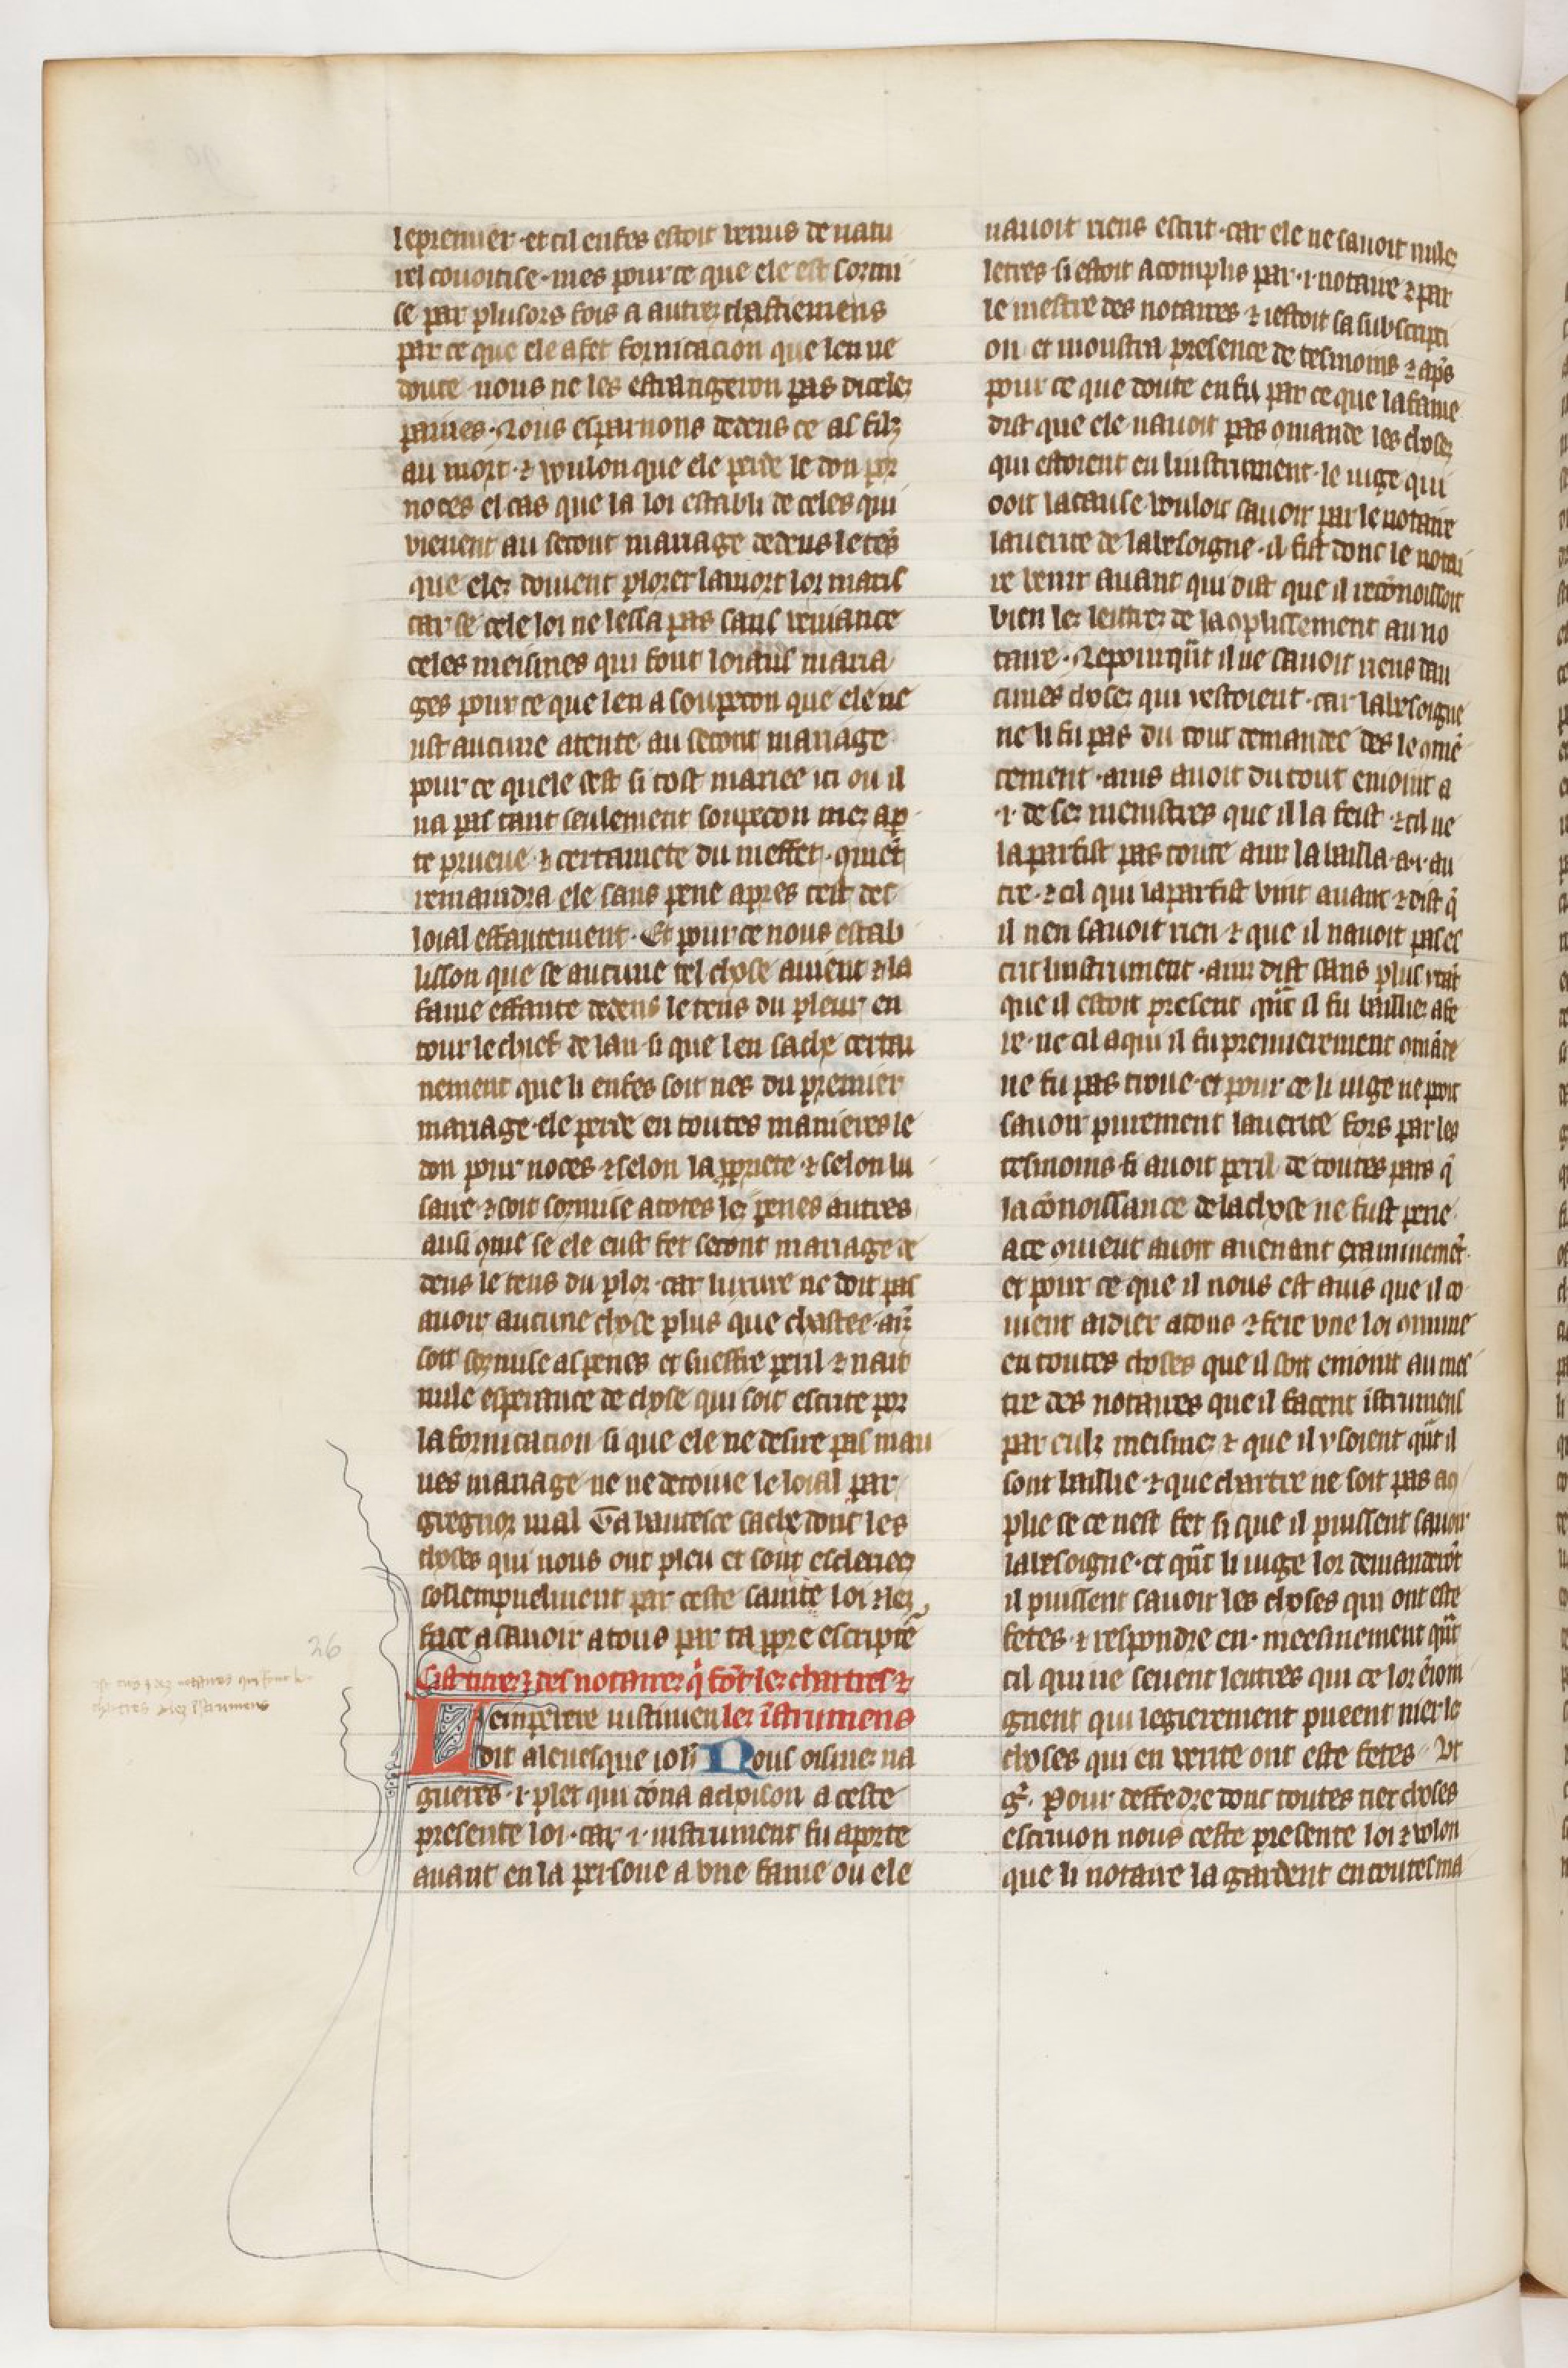 le premier · et cil enfes estoit venus de natu
rel covoitise · mes pour ce que ele est sormi
se par plusors fois a autrez chastiemens
par ce que ele a fet fornicacion que len ne
doute nous ne les estrangeron pas dicelez
paines · Nous esparnons dedens ce as filz
au mort · ⁊ voulon que ele perde le don por
noces el cas que la loi establi de celes qui
vienent au secont mariage dedens le tēs
que elez doivent plorer la mort lor maris
car se cele loi ne lessa pas sans veniance
celes meismes qui font loiaus maria
ges pour ce que len a soupecon que ele ne
ust aucune atente au secont mariage
pour ce quele sest si tost mariee ici ou il
na pas tant seulement soupecon mez ap
te prueve ⁊ certainete du meffet · 9mēt
remaindra ele sans pene apres cest des
loial effantement · Et pour ce nous estab
lisson que se aucune tel chose avient ⁊ la
fame effante dedens le tens du pleur en
tour le chief de lan · si que len sache certai
nement que li enfes soit nes du premier
mariage · ele perde en toutes manieres le
don pour noces ⁊ selon la p̱priete ⁊ selon lu
saire ⁊ soit sormise a totes lez penes autres
ausi 9me se ele eust fet secont mariage de
dens le tens du plor · car luxure ne doit pas
avoir aucune chose plus que chastee · aīz
soit sozmise as penes et sueffre peril ⁊ nait
nule esperance de chose qui soit escrite por
la fornicacion si que ele ne desire pas mau
ves mariage ne ne decoive le loial par
gregnor mal Ta hautesce sache dont les
choses qui nous ont pleu et sont esclerieez
sollempnelment par ceste sainte loi ⁊ lez
face a savoir a tous par ta p̱pre escriptē
Ci est titrez des notairez q̄ fōt lez chartres ⁊
Lempērere iustinien lez īstrumens
dit a levesque ioh̄ Nous oismez na
gueres ·i· plet qui dōna achoison a ceste
presente loi · car ·i· instrument fu aporte
avant en la persone a une fame ou ele
navoit riens escrit · car ele ne savoit nulez
letres · si estoit acomplis par ·i· notaire ⁊ par
le mestre des notaires ⁊ iestoit sa subscripti
on et moustra presence de tesmoins ⁊ ap̄s
pour ce que doute en fu par ce que la fame
dist que ele navoit pas 9mande les chosez
qui estoient en linstrument · le iuge qui
ooit la cause vouloit savoir par le notaire
la verite de la besoigne · il fist donc le notai
re venir avant qui dist que il recōnoissoit
bien lez lettrez de la 9plissement au no
taire · Neporqūt il ne savoit riens dau
cunes chosez qui i estoient · car la besoigne
ne li fu pas du tout demandee des le 9mē
cement · ains avoit du tout enioint a
·i· de sez menistres que il la feist · ⁊ cil ne
la parfist pas toute ainz la bailla · a ·i· au
tre · ⁊ cil qui la parfist vint avant ⁊ dist q̄
il nen savoit rien ⁊ que il navoit pas es
crit linstrument · ainz dist sans plus
que il estoit present qūt il fu baillie a fe
re · ne cil a qui il fu premierement 9māde
ne fu pas trove · et pour ce li iuge ne pooit
savoir purement la verite fors par les
tesmoins · si avoit peril de toutes pars q̄
la cōnoissance de la chose ne fust perie
a ce 9vient avoir avenant examinemēt
et pour ce que il nous est avis que il co
vient aidier a tous ⁊ fere une loi 9mune
en toutes choses que il soit enioint au mes
tre des notaires que il facent īstrumens
par eulz meismez ⁊ que il i soient qūt il
sont baillie · ⁊ que chartre ne soit pas a9
plie se ce nest fet si que il puissent savoir
la besoigne · et qūt li iuge lor demanderōt
il puissent savoir les choses qui ont este
fetes ⁊ respondre en · meesmement qūt
cil qui ne sevent lettres qui ce lor ēioin
gnent qui legierement pueent nier les
choses qui en verite ont este fetes · Vt
g̊ · Pour deffēdre donc toutes tiex choses
escrivon nous ceste presente loi ⁊ volon
que li notaire la gardent en toutes ma
26